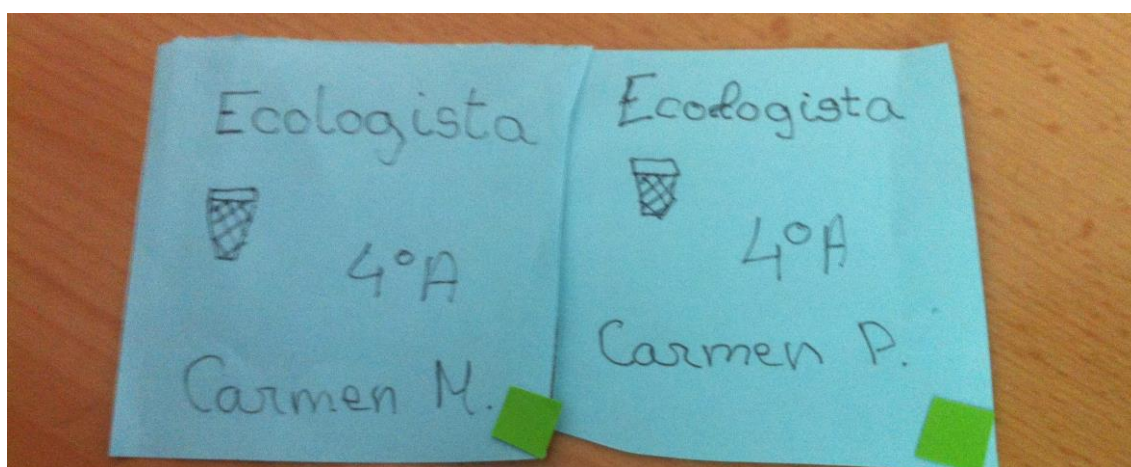 Ecologista
4ºA
Carmen M.
Ecologista
4ºA
Carmen P.